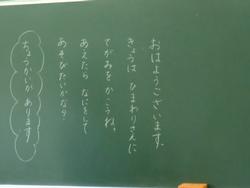 おはようございます。
きょうは ひまわりさんに
てがみを かこうね。
あえたら なにをして
あそびたいかな？
ちょうかいが あります